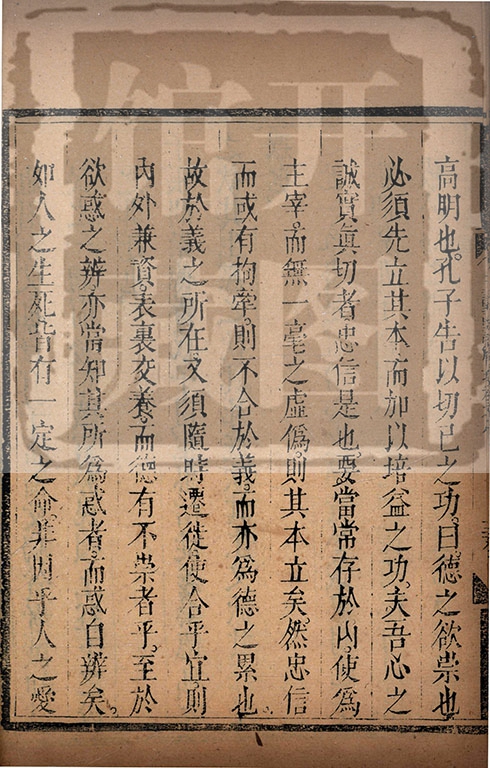 高明也。孔子告以切己之功。曰德之欲崇也
必須先立其本。而加以培益之功。夫吾心之
誠實眞切者。忠信是也。要當常存於內。使爲
主宰。而無一毫之虛僞。則其本立矣。然忠信
而或有拘牽。則不合於義。而亦爲德之累也。
故於義之所在。又須隨時遷徙。使合乎宜。則
內外兼資。表裏交養。而德有不崇者乎。至於
欲惑之辨。亦當知其所爲惑者。而惑自辨矣。
如人之生死。皆有一定之命。非因乎人之愛